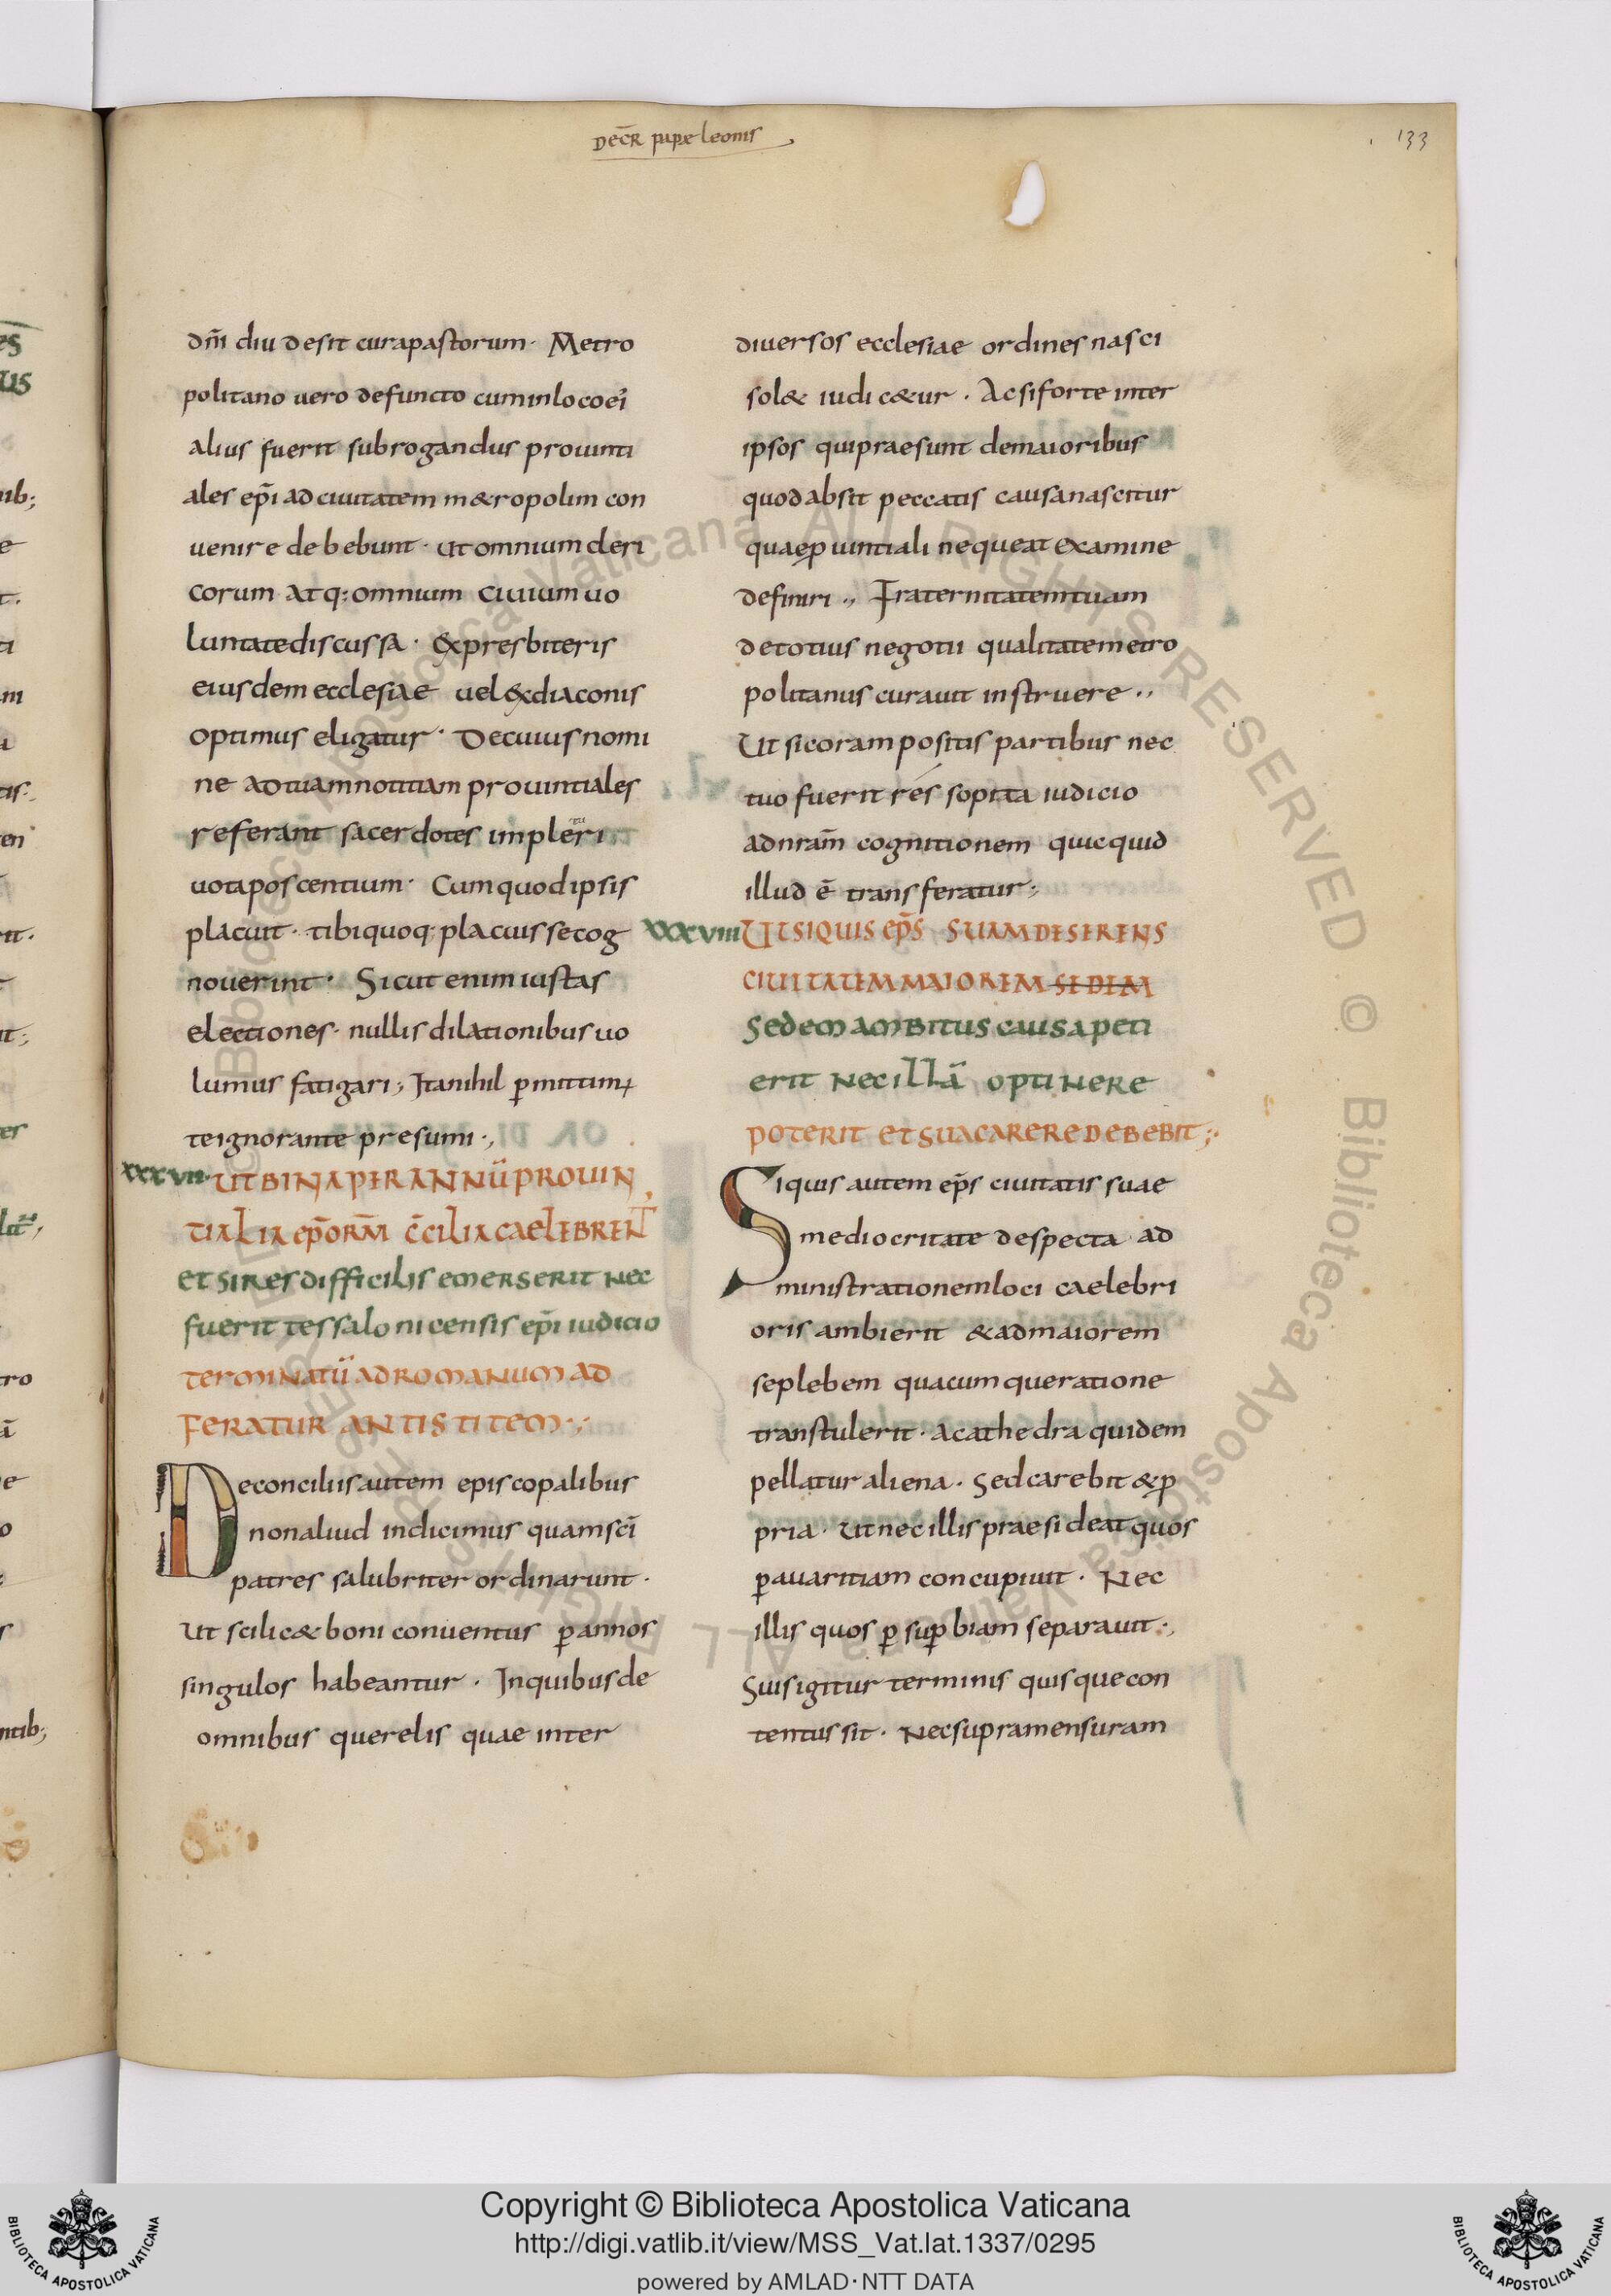 Decr̄ pape leonis
133
dn̄i diu desit cura pastorum · Metro
politano uero defuncto cum in loco ei̅
alius fuerit subrogandus prouinti
ales ep̄i ad ciuitatem m&ropolim con
uenire debebunt · ut omnium cleri
corum atq: omnium ciuium uo
luntate discussa · &x presbiteris
eiusdem ecclesiae uel &x diaconis
optimus eligatur · De cuius nomi
ne ad tuam notitiam prouintiales
referant sacerdotes impleri
uota poscentium · Cum quod ipsis
placuit · tibi quoq; placuisse cog
nouerint · Sicut enim iustas
electiones · nullis dilationibus uo
lumus fatigari; Ita nihil p̱mittimꝰ
te ignorante presumi·,
XXXVII· UT BINA PER ANNŪ PROUIN
TIALIA EP̄ORM̄ C̄CILIA CAELEBRENT
et si res difficilis emerserit nec
fuerit tessalonicensis ep̄i iudicio
terminatū ad romanum ad
feratur antistitem·;
De conciliis autem episcopalibus
non aliud indicimus quam sc̄i
patres salubriter ordinarunt ·
Ut scilic& boni conuentus ꝑ annos
singulos habeantur · In quibus de
omnibus querelis quae inter
diuersos ecclesiae ordines nasci
sol& iudic&ur · Ac si forte inter
ipsos qui praesunt de maioribus
quod absit peccatis causa nascitur
quae ꝓuintiali nequeat examine
definiri ·, Fraternitatem tuam
de totius negotii qualitate metro
politanus curauit instruere ·,
Ut si coram positis partibus nec
tuo fuerit res sopita iudicio
ad nram̄ cognitionem quicquid
illud ē transferatur;
XXXVIII UT SI QUIS EP̄S SUAM DESERENS
CIUITATEM MAIOREM SEDEM
sedem ambitus causa peti
erit nec illā optinere
poterit et sua carere debebit;·
Si quis autem ep̄s ciuitatis suae
mediocritate despecta · ad
ministrationem loci caelebri
oris ambierit & ad maiorem
se plebem quacumque ratione
transtulerit · a cathedra quidem
pellatur aliena · Sed carebit & ꝓ
pria · Ut nec illis praesideat quos
ꝑ auaritiam concupiuit · Nec
illis quos ꝑ suꝑbiam separauit ·,
Suis igitur terminis quisque con
tentus sit · Nec supra mensuram
Copyright © Biblioteca Apostolica Vaticana
http://digi.vatlib.it/view/MSS_Vat.lat.1337/0295
powered by AMLAD·NTT DATA